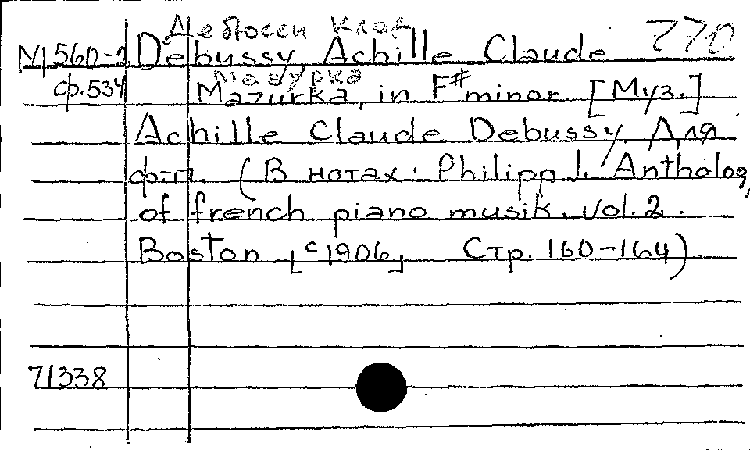 Дебюсси Клод
N 560-2 Debussy, Achille Claude 770
Мазурка
ф.534 Mazurka, in F# minor. [Муз.]
Achille Claude Debussy. Для
ф-п. (В нотах: Philipp I. Antholog,
of french piano musik. vol. 2.
Boston [c1906] Стр. 160-164)
71338